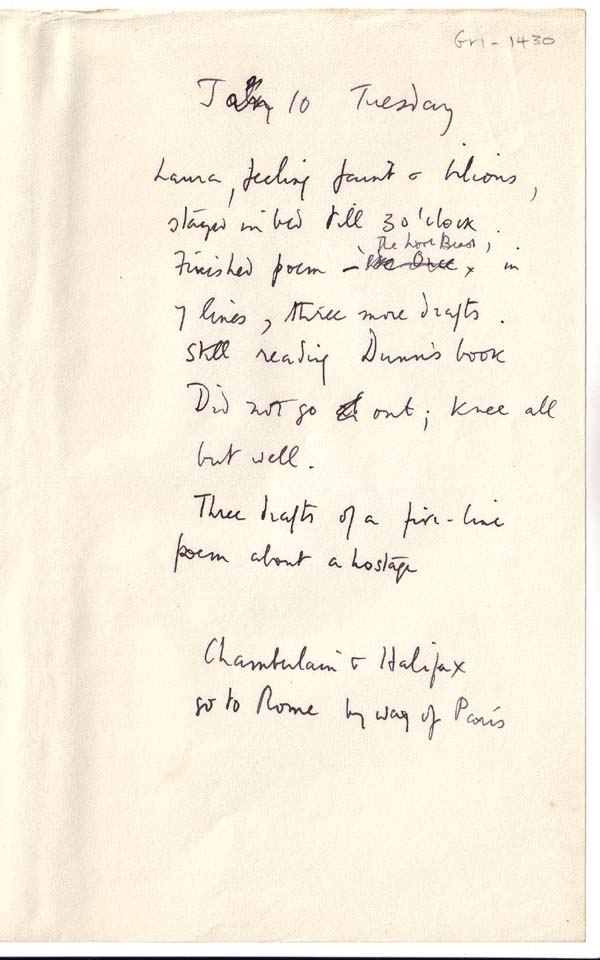 Gri-1430
Jan 10 Tuesday
Laura, feeling faint & bilious,
stayed in bed till 3 o'clock.
The Love Beast,
Finished poem – ' x in
7 lines, three more drafts.
Still reading Dunn's book
Did not go out; knee all
but well.
Three drafts of a five-line
poem about a hostage
Chamberlain & Halifax
go to Rome by way of Paris